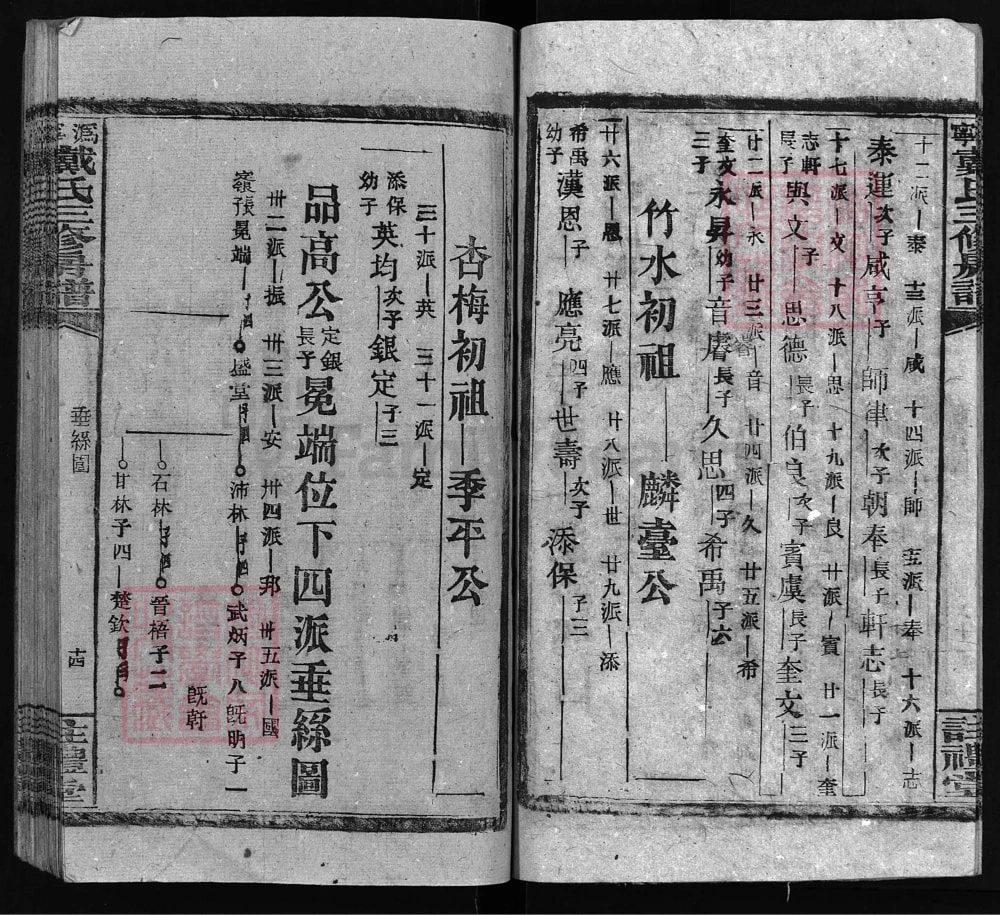 十二派—泰 十三派—咸 十四派—師 十五派—奉 十六派—志
泰運次子咸亨子 師律次子朝奉長子軒志長子
十七派—文 十八派—思 十九派—良 廿派—賓 廿一派—奎
志軒長子興文子 思德長子伯良次子賓虞長子奎文三子
廿二派—永 廿三派—音 廿四派—久 廿五派—希
奎文三子永昇幼子音睿長子久思四子希禹子六
竹水初祖—麟臺公
廿六派—恩 廿七派—應 廿八派—世 廿九派—添
希禹幼子漢恩子 應亮四子世壽次子添保子三
杏梅初祖—季平公
三十派—英 三十一派—定
添保幼子英均次子銀定子三
品高公定銀長子冕端位下四派垂絲圖
卅二派—振 卅三派—安 卅四派—邦 卅五派—國
冕端 盛堂 沛林 武炳子八既明子一
既軒
石林 晉梧子二
甘林子四—楚欽
戴氏三修房譜
垂絲圖
十四
註禮堂
寧戴氏三修房譜
註禮堂